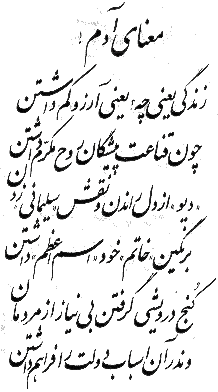 معنای آدم!
زندگی یعنی چه؟ یعنی آرزو کم داشتن
چون قناعت پیشگان روح مکرّم داشتن
«دیو» از دل راندن و نقش «سلیمانی» زدن
بر نگین «خاتم» خود «اسم اعظم» داشتن
کنج درویشی گرفتن بی نیاز از مردمان
وندر آن اسباب دولت را فراهم داشتن